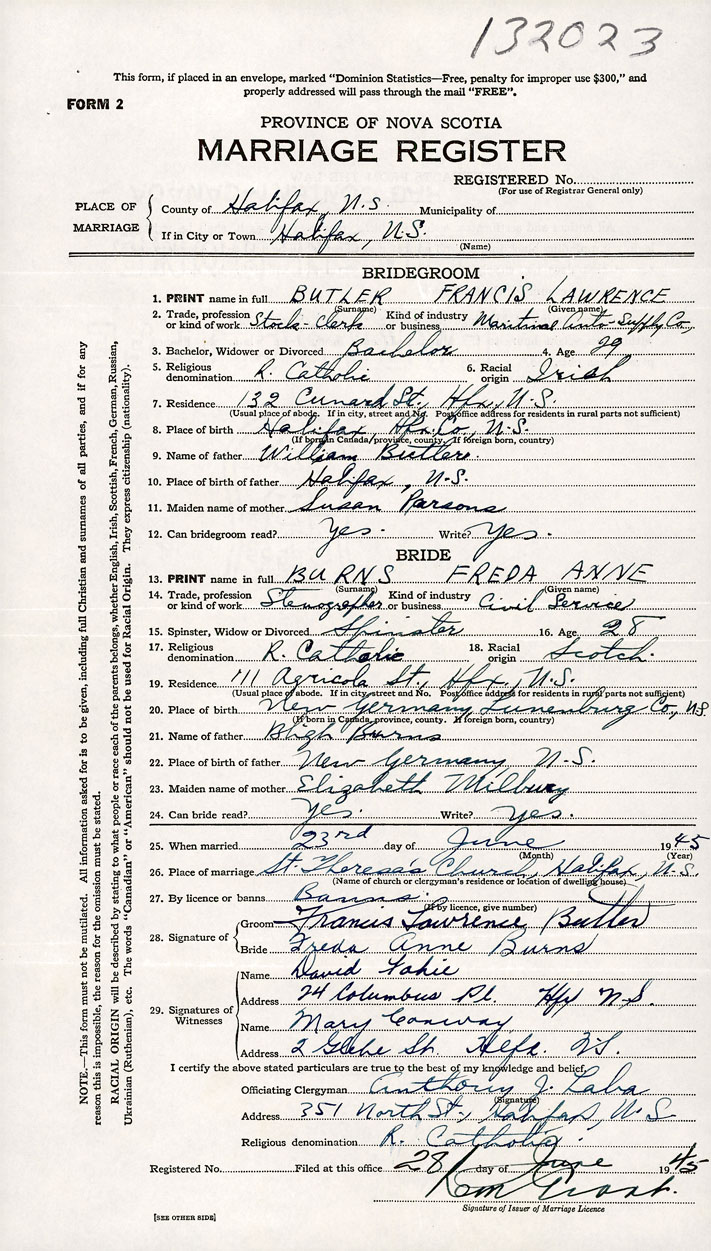 132023
This form, if placed in an envelope, marked “Dominion Statistics—Free, penalty for improper use $300,” and
properly addressed will pass through the mail “FREE”.
FORM 2
PROVINCE OF NOVA SCOTIA
MARRIAGE REGISTER
REGISTERED No.
(For use of Registrar General only)
PLACE OF MARRIAGE
County of Halifax, N.S. Municipality of
If in City or Town Halifax, N.S.
(Name)
BRIDEGROOM
1. PRINT name in full BUTLER FRANCIS LAWRENCE
(Surname) (Given name)
2. Trade, profession or kind of work Stock-clerk Kind of industry or business Maritime Auto-Supply Co.,
3. Bachelor, Widower or Divorced Bachelor 4. Age 29
5. Religious denomination R. Catholic 6. Racial origin Irish
7. Residence 132 Cunard St., Hfx., N.S.
(Usual place of abode. If in city, street and No. Post office address for residents in rural parts not sufficient)
8. Place of birth Halifax, Hfx. Co., N.S.
(If born in Canada, province, county. If foreign born, country)
9. Name of father William Butler.
10. Place of birth of father Halifax, N.S.
11. Maiden name of mother Susan Parsons
12. Can bridegroom read? Yes. Write? Yes.
BRIDE
13. PRINT name in full BURNS FREDA ANNE
(Surname) (Given name)
14. Trade, profession or kind of work Stenographer Kind of industry or business Civil Service
15. Spinster, Widow or Divorced Spinster 16. Age 28
17. Religious denomination R. Catholic 18. Racial origin Scotch.
19. Residence 111 Agricola St., Hfx., N.S.
(Usual place of abode. If in city, street and No. Post office address for residents in rural parts not sufficient)
20. Place of birth New Germany Lunenburg Co., N.S.
(If born in Canada, province, county. If foreign born, country)
21. Name of father Bligh Burns
22. Place of birth of father New Germany N.S.
23. Maiden name of mother Elizabeth Milbury
24. Can bride read? Yes. Write? Yes.
25. When married 23rd day of June 1945
(Month) (Year)
26. Place of marriage St. Theresa's Church, Halifax, N.S.
(Name of church or clergyman's residence or location of dwelling house)
27. By licence or banns Banns.
(If by licence, give number)
28. Signature of
Groom Francis Lawrence Butler
Bride Freda Anne Burns
29. Signatures of Witnesses
Name David Fahie
Address 24 Columbus Pl. Hfx N.S.
Name Mary Conway
Address 2 Glebe St. Hlfx. N.S.
I certify the above stated particulars are true to the best of my knowledge and belief.
Officiating Clergyman Anthony J. Laba
(Signature)
Address 351 North St., Halifax, N.S.
Religious denomination R. Catholic.
Registered No. Filed at this office 28 day of June 1945
Signature of Issuer of Marriage Licence
[SEE OTHER SIDE]
NOTE.—This form must not be mutilated. All information asked for is to be given, including full Christian and surnames of all parties, and if for any
reason this is impossible, the reason for the omission must be stated.
RACIAL ORIGIN will be described by stating to what people or race each of the parents belongs, whether English, Irish, Scottish, French, German, Russian,
Ukrainian (Ruthenian), etc. The words “Canadian” or “American” should not be used for Racial Origin. They express citizenship (nationality).